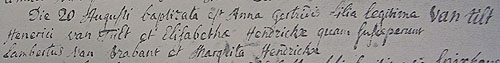 Die 20 Augusti baptizata est Anna Gertrudis filia legitima van tilt
Henrici van Tilt et Elisabetha Hendrickx quam susceperunt
Lambertus van Brabant et Margrita Hendrickx